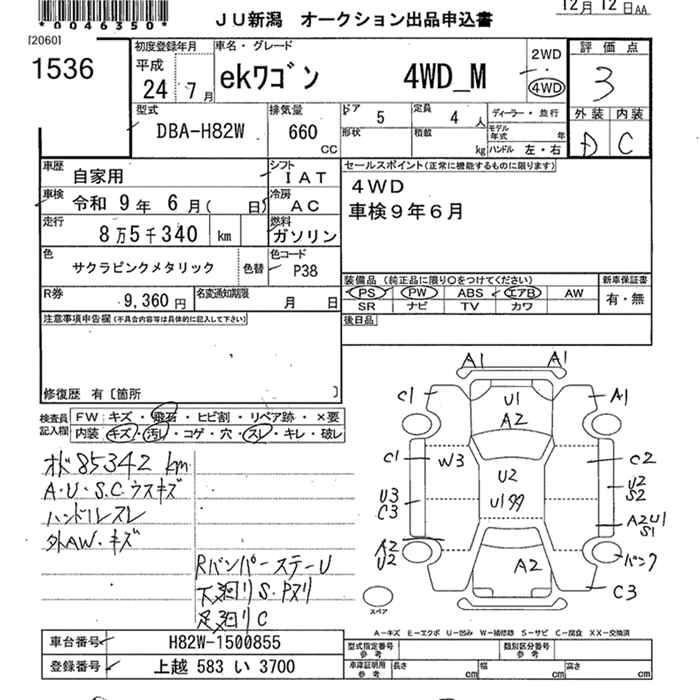 *0046350*
JU新潟 オークション出品申込書
12月12日AA
[2060]
1536
初度登録年月
平成
24 7月
車名・グレード
ekワゴン 4WD_M
2WD
4WD
評価点
3
外装 内装
D C
型式
DBA-H82W
排気量
660
CC
ドア
5
定員
4 人
ディーラー・並行
形状
積載
kg
モデル年式 年
ハンドル 左・右
車歴
自家用
シフト
IAT
車検
令和 9年 6月( 日)
冷房
AC
走行
8万5千340 km
燃料
ガソリン
色
サクラピンクメタリック
色替
色コード
P38
R券
9,360円
名変通知期限
月 日
セールスポイント(正常に機能するものに限ります)
4WD
車検9年6月
装備品(純正品に限り○をつけてください)
PS PW ABS エアB AW
SR ナビ TV カワ
新車保証書
有・無
後日品
注意事項申告欄(不具合内容等は具体的に記入して下さい)
修復歴 有〔箇所 〕
検査員記入欄
FW:キズ・飛石・ヒビ割・リペア跡・×要
内装 キズ・汚レ・コゲ・穴・スレ・キレ・破レ
オド85342km
A・U・S.C.ウスキズ
ハンドルスレ
外AW・キズ
RバンパーステーU
下廻リS.Pヌリ
足廻リC
A1 A1
C1 U1 A1
A2
C1 W3 C2
U2
U2
S2
U3
C3
U1
A2U1
S1
A2
U2
A2
パンク
C3
スペア
A-キズ E-エクボ U-凹み W-補修跡 S-サビ C-腐食 XX-交換済
車台番号 H82W-1500855
登録番号 上越 583 い 3700
型式指定番号
参考
類別区分番号
参考
車庫証明用
参考
長さ cm 幅 cm 高さ cm